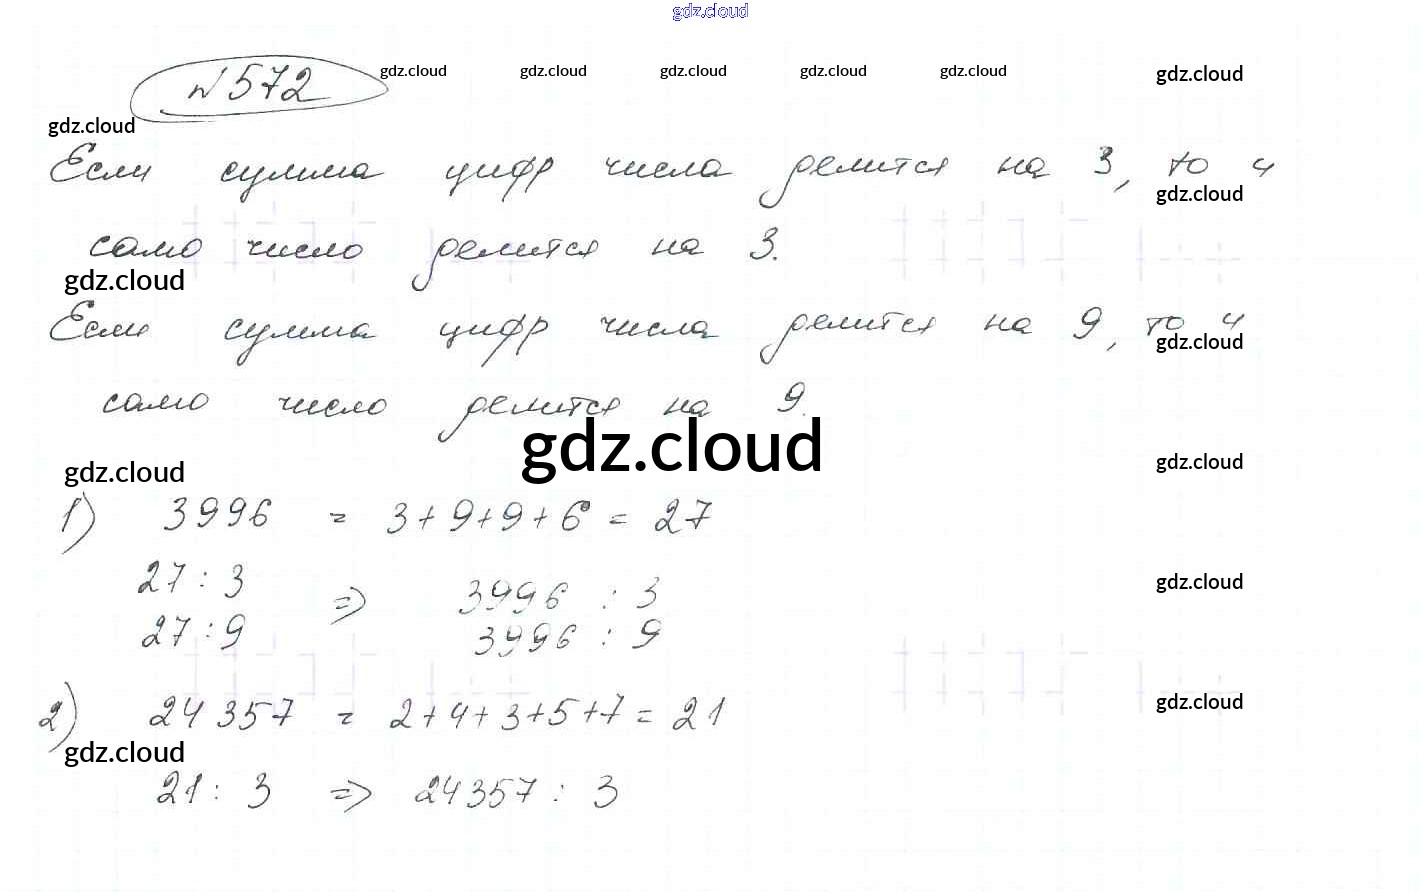 gdz.cloud
№572
gdz.cloud gdz.cloud gdz.cloud gdz.cloud gdz.cloud gdz.cloud
gdz.cloud
Если сумма цифр числа делится на 3, то и
gdz.cloud
само число делится на 3.
gdz.cloud
Если сумма цифр числа делится на 9, то и
gdz.cloud
само число делится на 9.
gdz.cloud
gdz.cloud
gdz.cloud
1) 3996 = 3+9+9+6 = 27
27 : 3
⇒ 3996 : 3
gdz.cloud
27 : 9
3996 : 9
2) 24357 = 2+4+3+5+7 = 21
gdz.cloud
gdz.cloud
21 : 3 ⇒ 24357 : 3